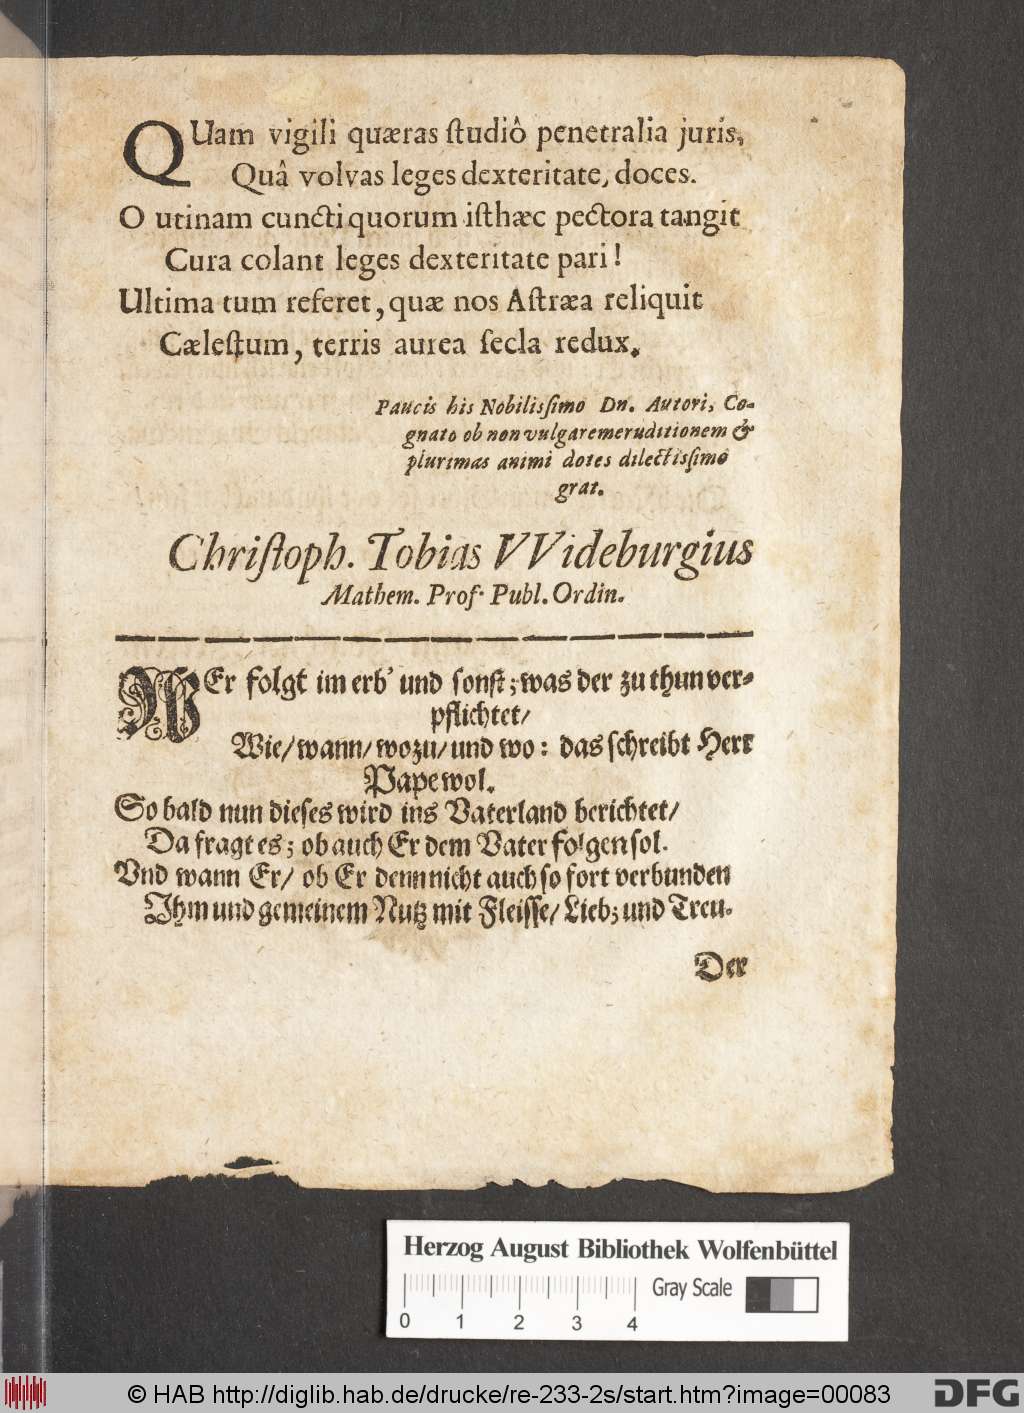 QUam vigili quæras ſtudiô penetralia juris,
Quâ volvas leges dexteritate, doces.
O utinam cuncti quorum iſthæc pectora tangit
Cura colant leges dexteritate pari!
Ultima tum referet, quæ nos Aſtræa reliquit
Cæleſtum, terris aurea ſecla redux.
Paucis his Nobilisſimo Dn. Autori, Co-
gnato ob non vulgarem eruditionem &
plurimas animi dotes dilectisſimô
grat.
Chriſtoph. Tobias VVideburgius
Mathem. Prof. Publ. Ordin.
WEr folgt im erb' und ſonſt; was der zu thun ver-
pflichtet/
Wie/ wann/ wozu/ und wo: das ſchreibt Herr
Pape wol.
So bald nun dieſes wird ins Vaterland berichtet/
Da fragt es; ob auch Er dem Vater folgen ſol.
Vnd wann Er/ ob Er denn nicht auch ſo fort verbunden
Ihm und gemeinem Nutz mit Fleiſſe/ Lieb; und Treu.
Der
Herzog August Bibliothek Wolfenbüttel
Gray Scale
0 1 2 3 4
© HAB http://diglib.hab.de/drucke/re-233-2s/start.htm?image=00083
DFG